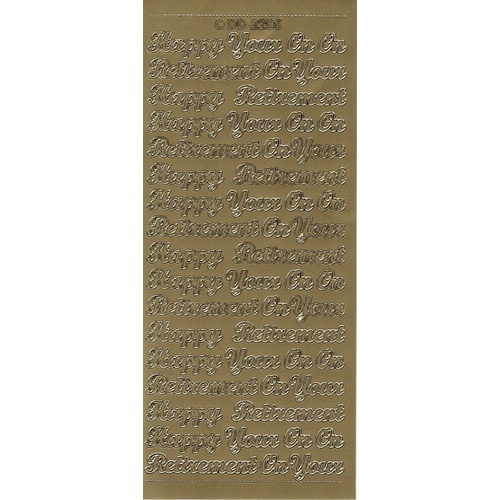 © DD 2206
Happy Your On On
Retirement On Your
Happy Retirement
Happy Your On On
Retirement On Your
Happy Retirement
Happy Your On On
Retirement On Your
Happy Retirement
Happy Your On On
Retirement On Your
Happy Retirement
Happy Your On On
Retirement On Your
Happy Retirement
Happy Your On On
Retirement On Your